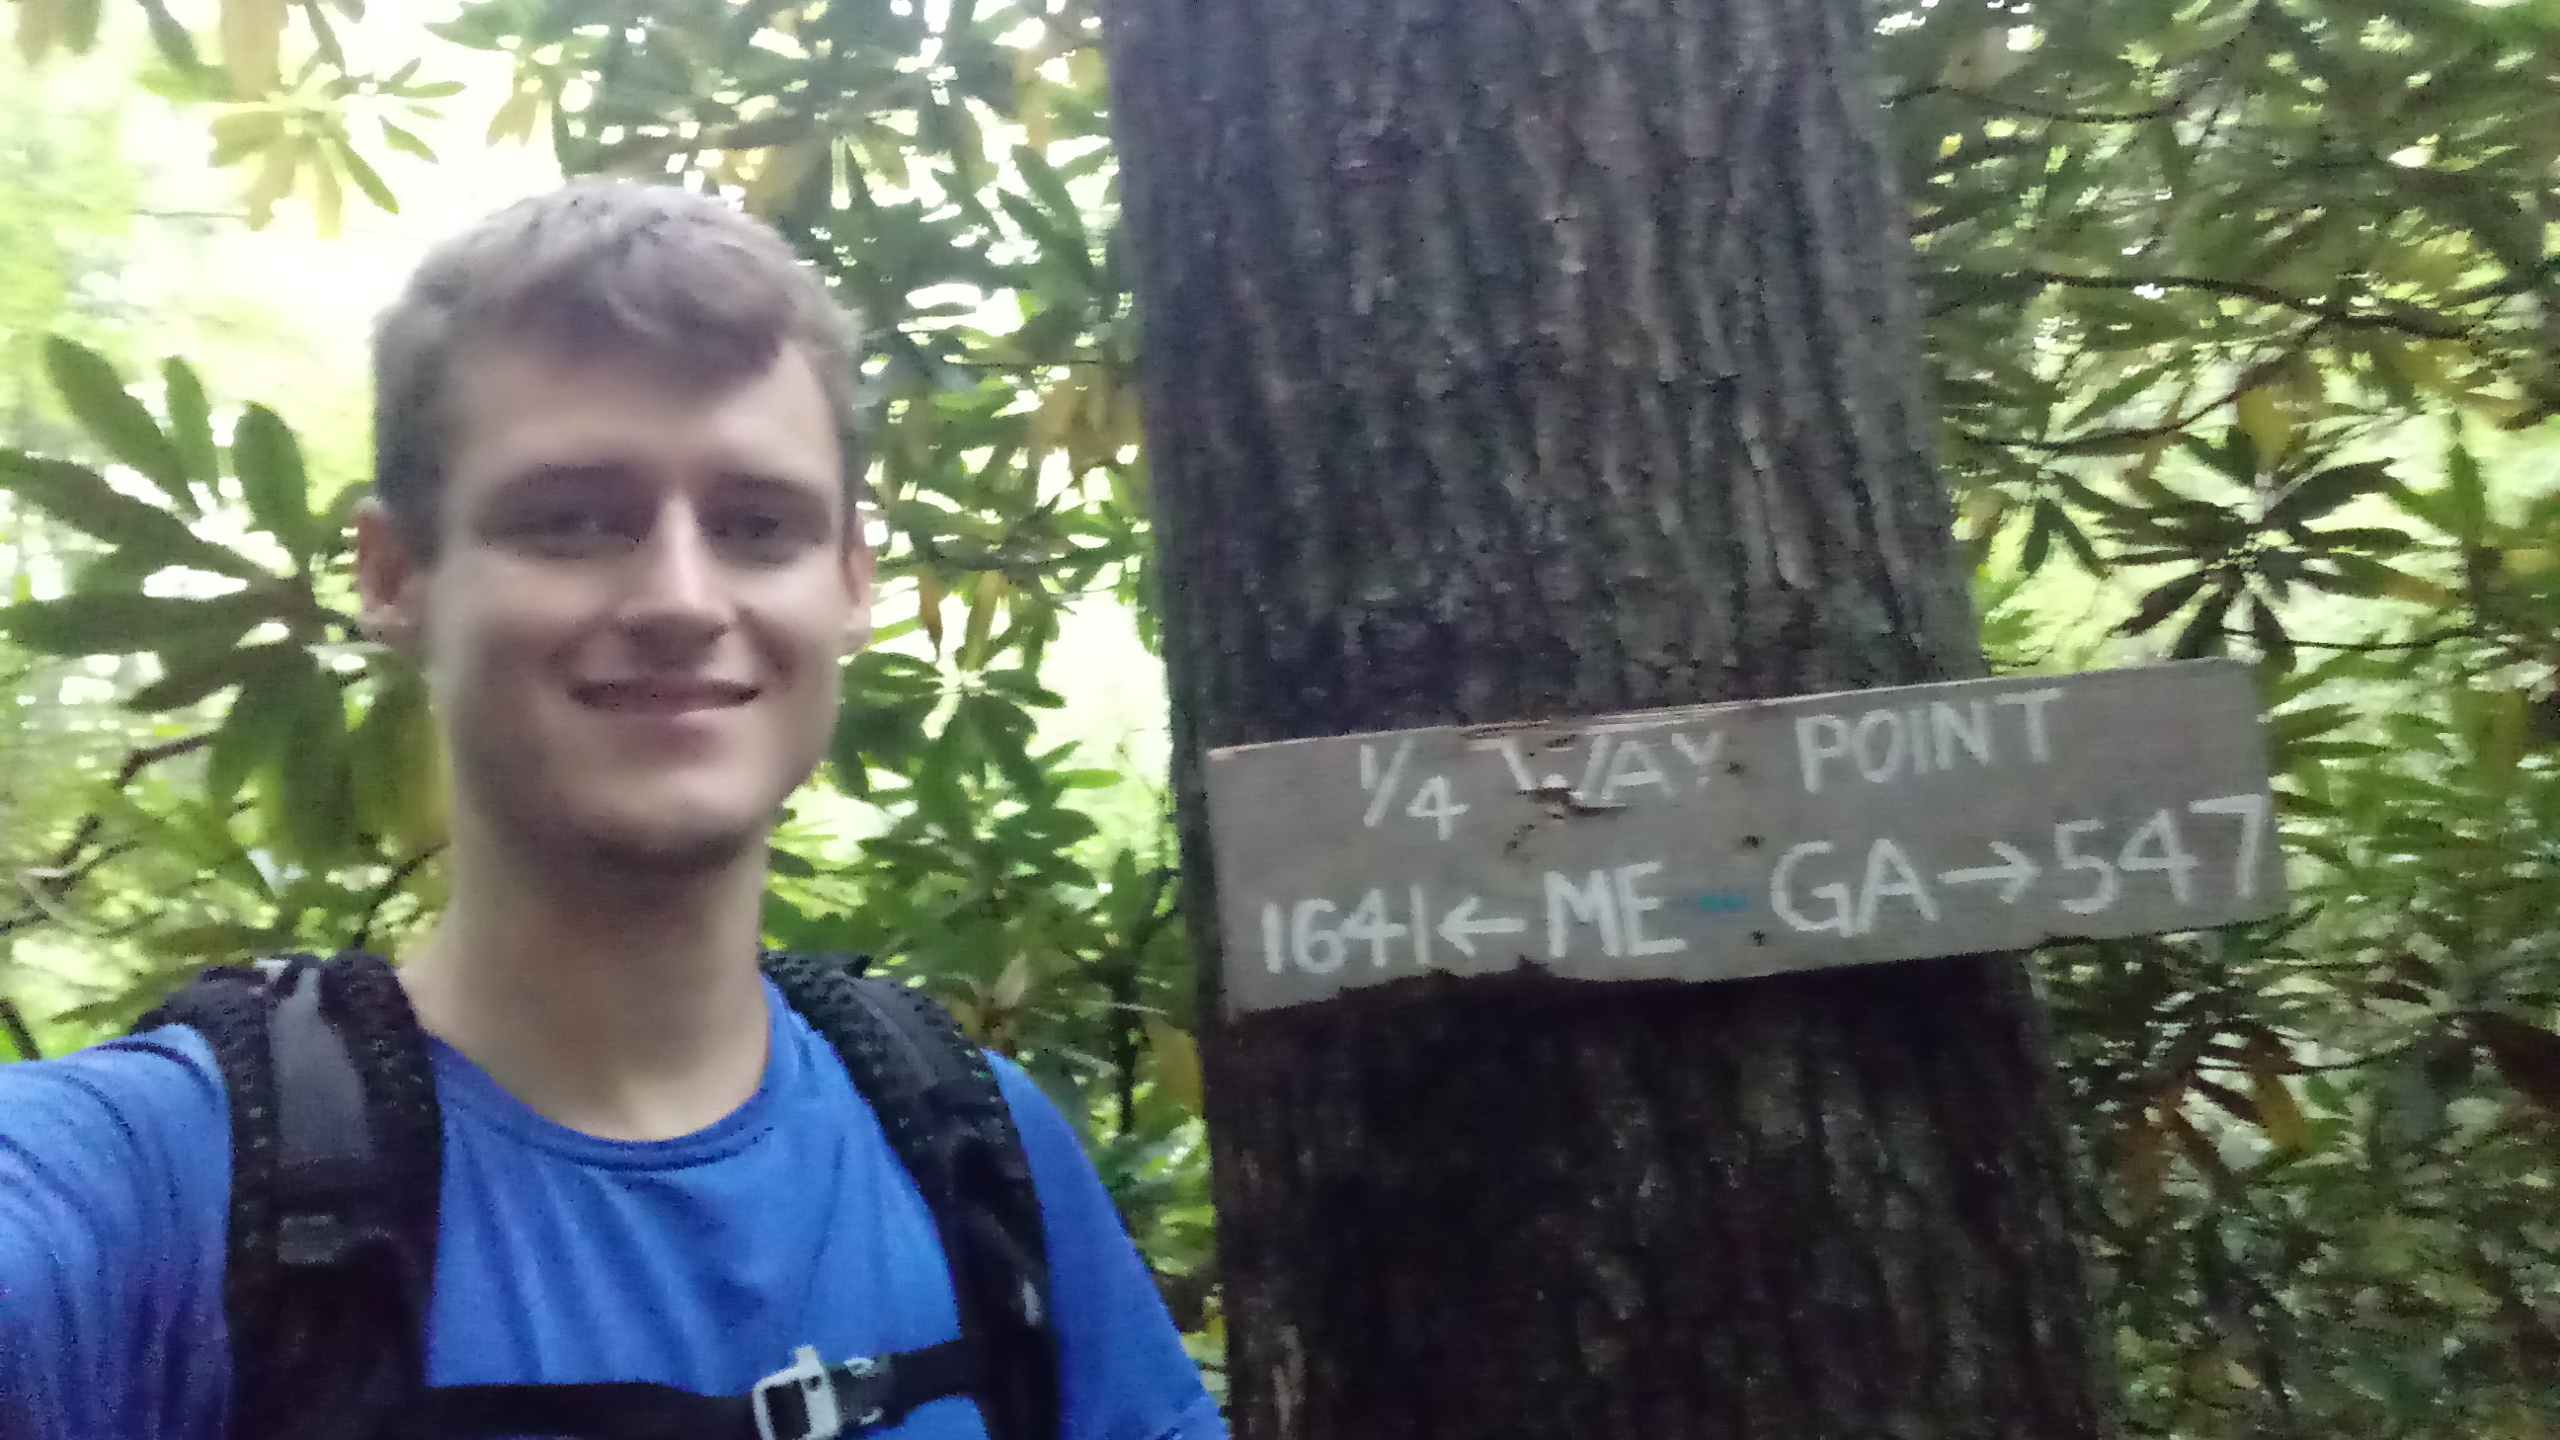 1/4 WAY POINT
1641←ME - GA→547